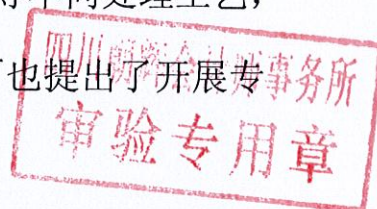 处理工艺,
也提出了开展专
四川 会 师事务所
审验专用章